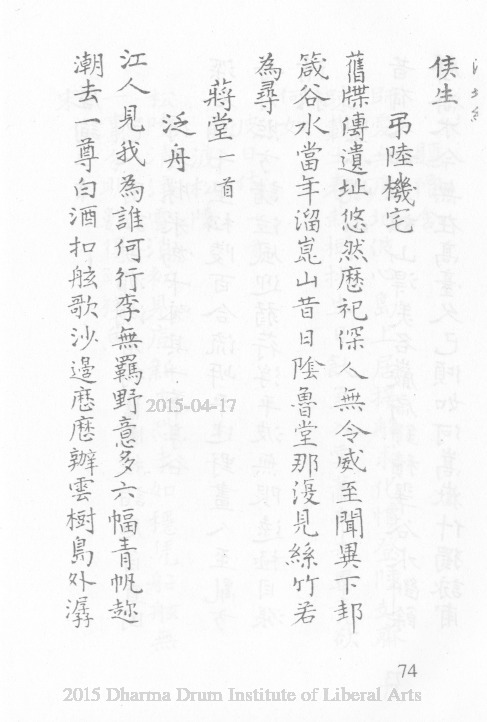 侠生
弔陸機宅
舊牒傳遺址悠然厯祀深人無令威至聞異下邽
箴谷水當年溜崑山昔日陰魯堂那復見絲竹若
為尋
蔣堂一首
泛舟
江人見我為誰何行李無羈野意多六幅青帆趂
潮去一尊白酒扣舷歌沙邊厯厯辦雲樹島外潺
2015-04-17
74
2015 Dharma Drum Institute of Liberal Arts